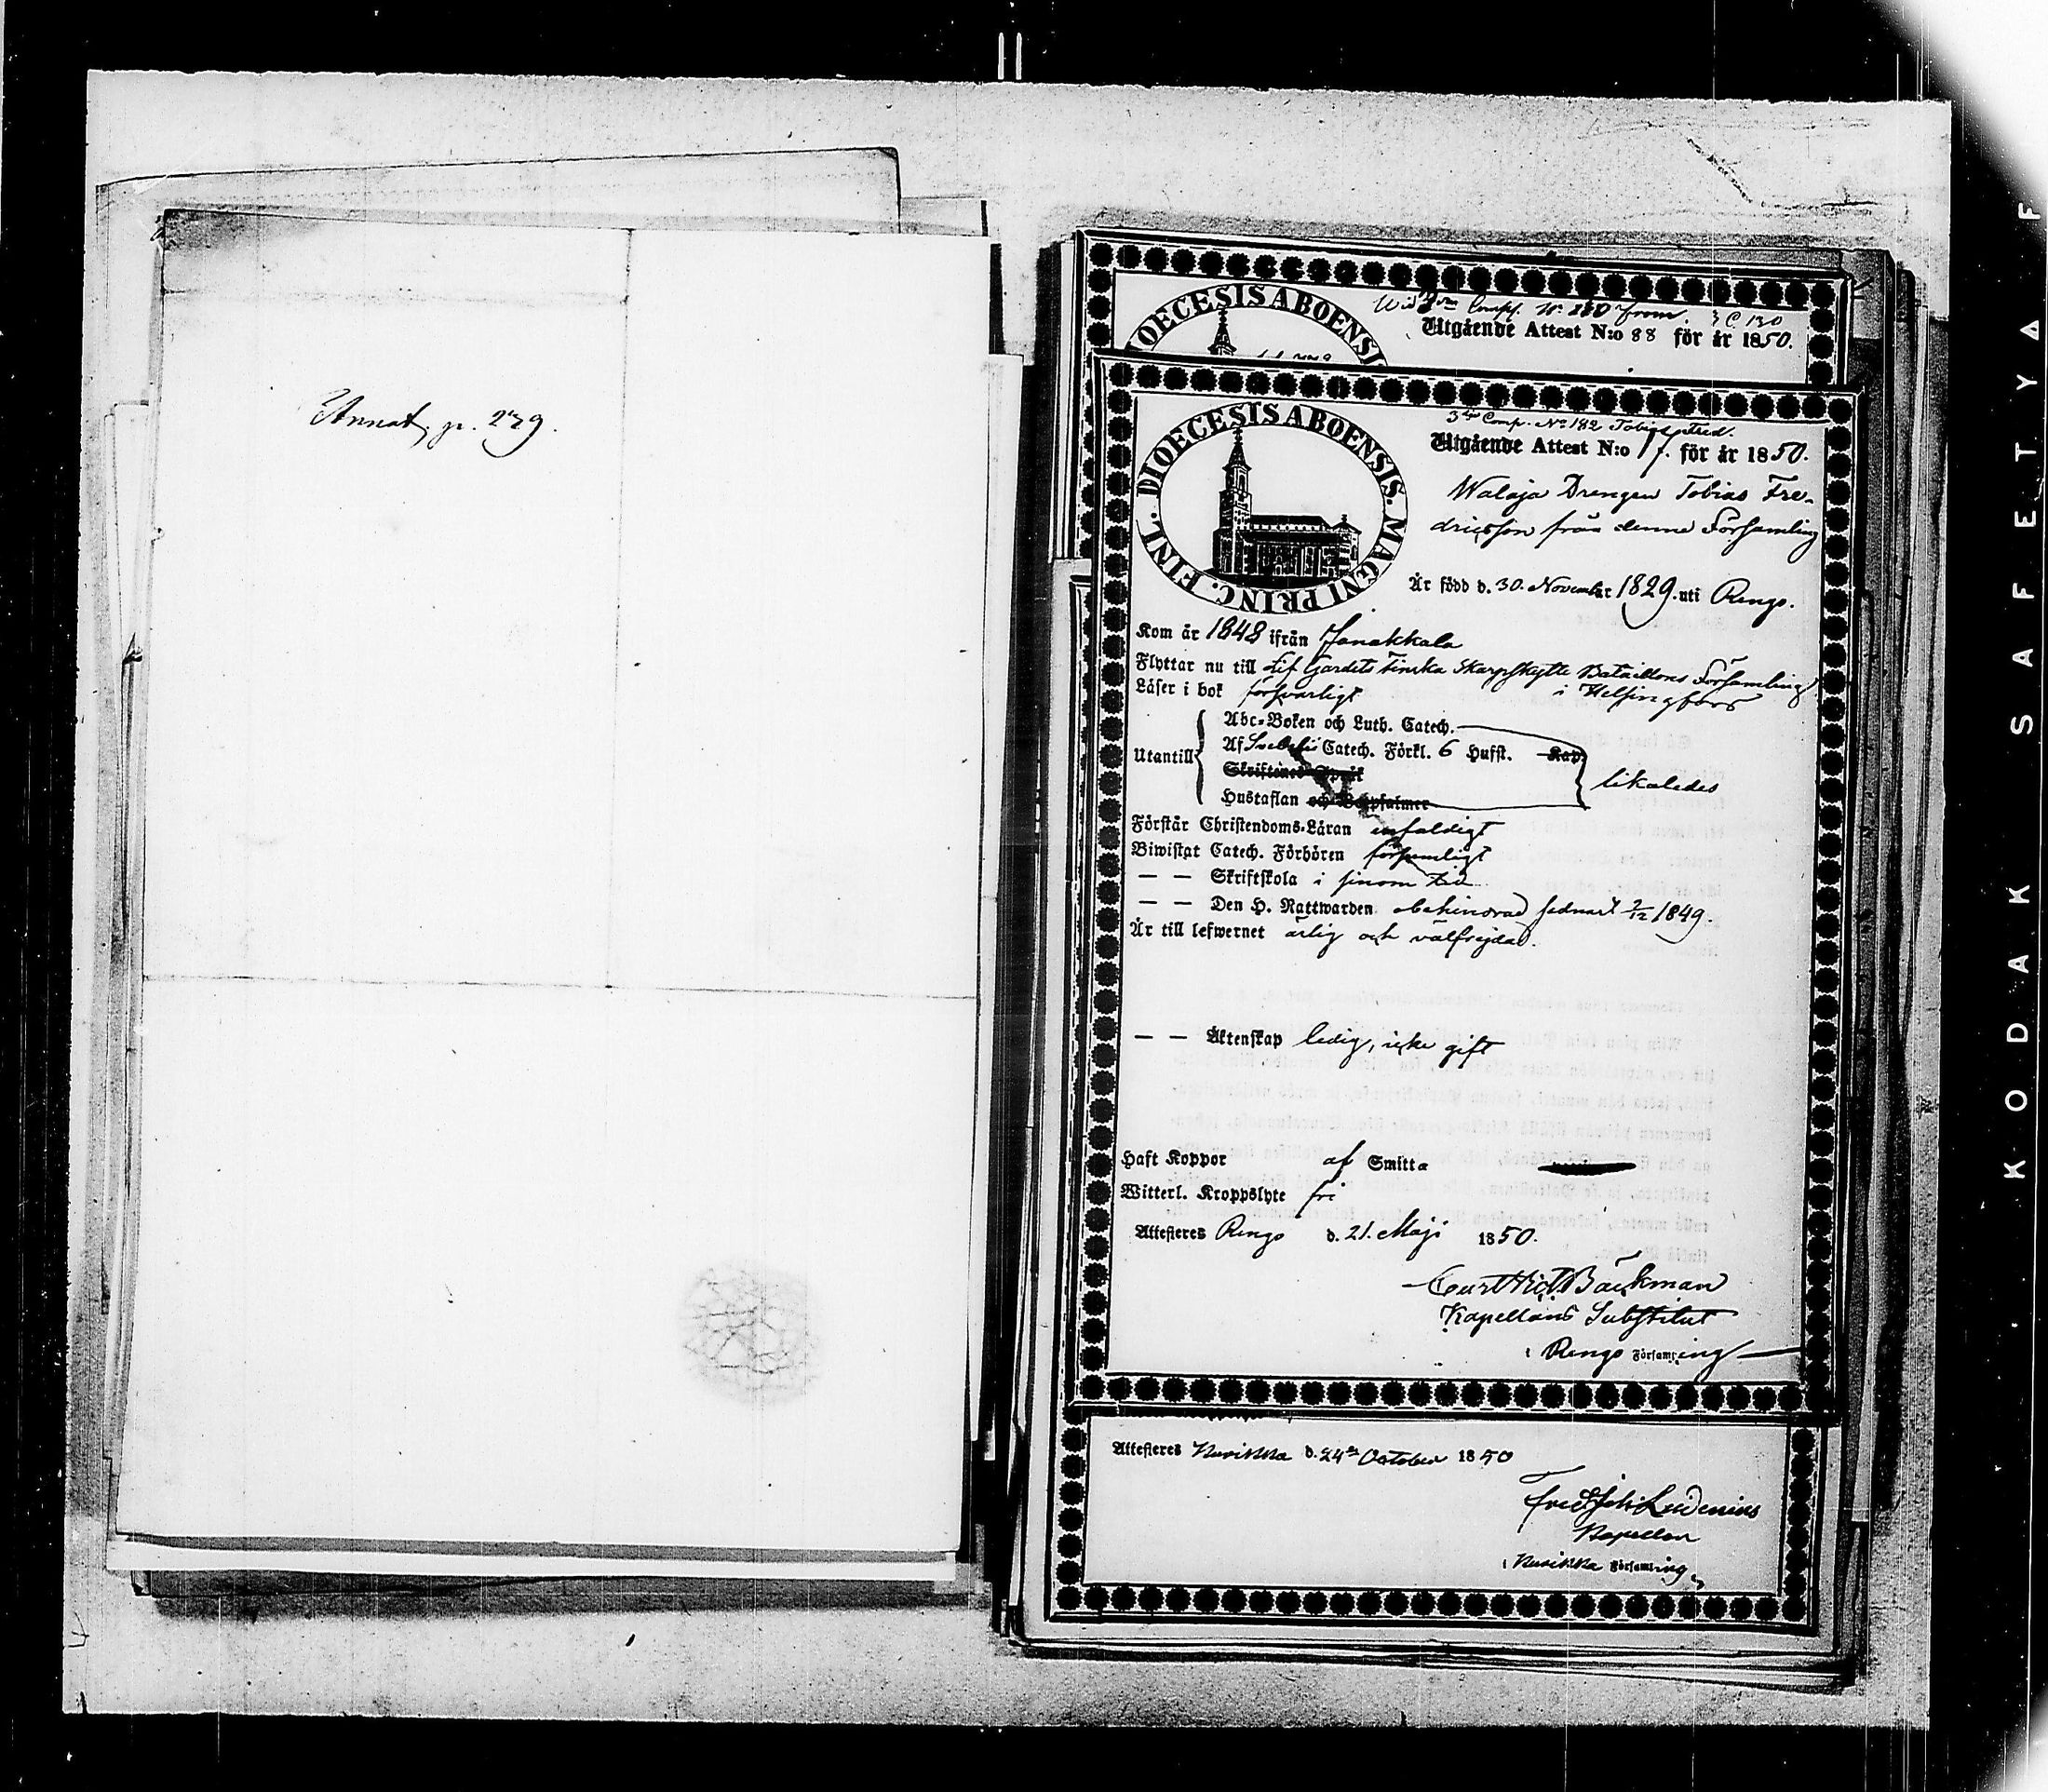 Annot. p. 279.
DIOECESIS ABOENSIS
Wid 3dje Comp. N:o 180 From. 3 C 130
Utgående Attest N:o 88 för år 1850.
DIOECESIS ABOENSIS. MAGNI PRINC. FINL.
3dje Comp. No 182 Tobias Fred.
Utgående Attest N:o 17. för år 1850.
Walaja Drengen Tobias Fre-
dricsson från denna Församling
Är född d. 30. November 1829. uti Rengo.
Kom år 1848 ifrån Janakkala
Flyttar nu till Lif Gardets Finska Skarpskytte Bataillons Församling
i Helsingfors
Läser i bok försvarligt
Abc-Boken och Luth. Catech.
Utantill Af Svebelii Catech. Förkl. 6 Hufst. Kap.
Skriftenes Språk
likaledes
Hustaflan och Botpsalmer
Förstår Christendoms-Läran enfaldigt
Biwistat Catech. Förhören försumligt
— — Skriftskola i sinom tid
— — Den H. Nattwarden obehindrad sednast 2/12 1849.
Är till lefwernet ärlig och välfrejdad.
— — Äktenskap ledig, icke gift
Haft Koppor af Smitta
Witterl. Kroppslyte fri
Attesteras Rengo d. 21. Maji 1850.
Curt Bäckman
Kapellans Substitut
i Rengo Församling
Attesteras Kuvikka d. 24de October 1850
Fred Joh Ludenius
Kapellan
i Församling
KODAK SAFETY △ F